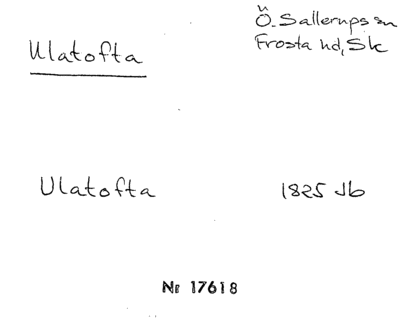 Ulatofta
Ö. Sallerups sn
Frosta hd, Sk
Ulatofta 1825 Jb
Nr 17618